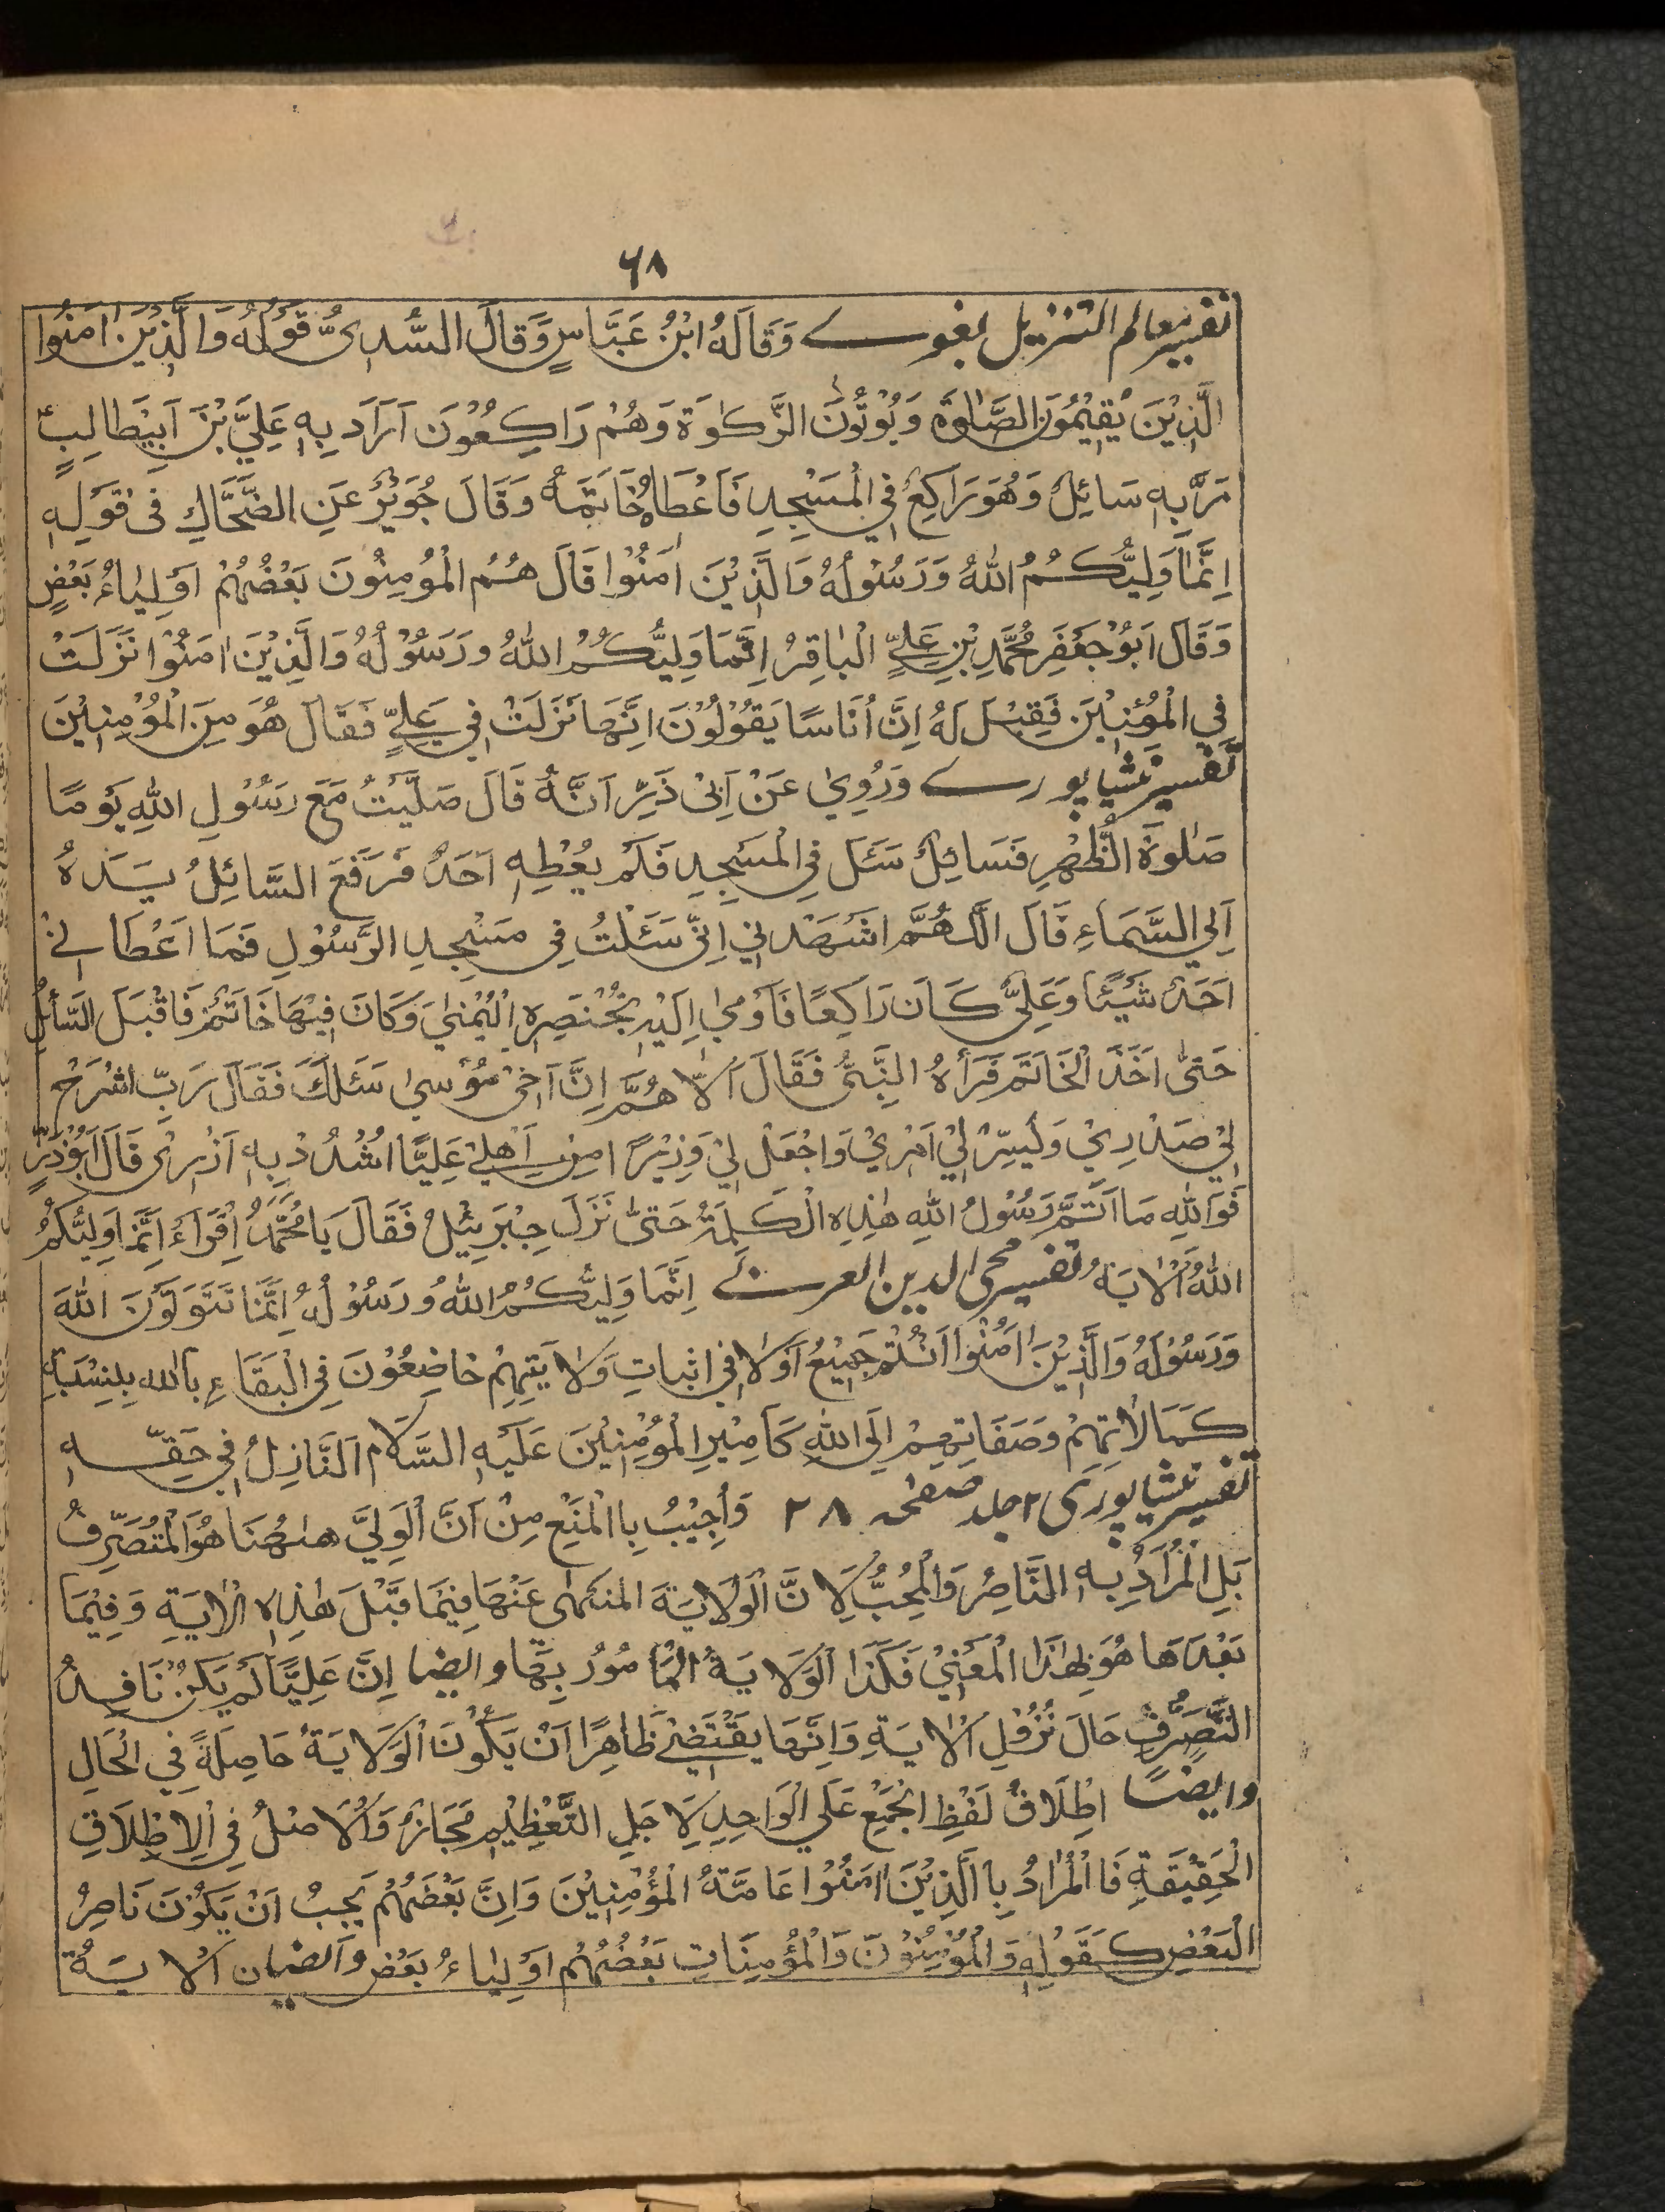 ۶۸
تفسیر معالم التنزیل بغوے وَقَالَهُ ابْنُ عَبَّاسٍ وَّقَالَ السُّدِیُّ قَوْلُهُ وَالَّذِیْنَ اٰمَنُوا
الَّذِیْنَ یُقِیْمُوْنَ الصَّلٰوةَ وَیُوْتُوْنَ الزَّکٰوةَ وَهُمْ رَاکِعُوْنَ اَرَادَ بِهٖ عَلِیَّ بْنَ اَبِیْطَالِبٍ
مَرَّ بِهٖ سَائِلٌ وَهُوَ رَاکِعٌ فِی الْمَسْجِدِ فَاَعْطَاهُ خَاتَمَهٗ وَقَالَ جُوَیْرٌ عَنِ الضَّحَّاكِ فِیْ قَوْلِهٖ
اِنَّمَا وَلِیُّکُمُ اللّٰهُ وَرَسُوْلُهٗ وَالَّذِیْنَ اٰمَنُوْا قَالَ هُمُ الْمُوْمِنُوْنَ بَعْضُهُمْ اَوْلِیَاءُ بَعْضٍ
وَقَالَ اَبُوْ جَعْفَرِ مُحَمَّدِ بْنِ عَلِیٍّ الْبَاقِرُ اِنَّمَا وَلِیُّکُمُ اللّٰهُ وَرَسُوْلُهٗ وَالَّذِیْنَ اٰمَنُوْا نَزَلَتْ
فِی الْمُؤْمِنِیْنَ فَقِیْلَ لَهٗ اِنَّ اُنَاسًا یَقُوْلُوْنَ اِنَّهَا نَزَلَتْ فِیْ عَلِیٍّ فَقَالَ هُوَ مِنَ الْمُؤْمِنِیْنَ
تفسیر نیشاپورے وَرُوِیَ عَنْ اَبِیْ ذَرٍّ اَنَّهٗ قَالَ صَلَّیْتُ مَعَ رَسُوْلِ اللّٰهِ یَوْمًا
صَلٰوةَ الظُّهْرِ فَسَائِلٌ سَئَلَ فِی الْمَسْجِدِ فَلَمْ یُعْطِهٖ اَحَدٌ فَرَفَعَ السَّائِلُ یَدَهٗ
اِلَی السَّمَاءِ قَالَ اللّٰهُمَّ اشْهَدْ اِنِّیْ سَئَلْتُ فِیْ مَسْجِدِ الرَّسُوْلِ فَمَا اَعْطَانِیْ
اَحَدٌ شَیْئًا وَعَلِیٌّ کَانَ رَاکِعًا فَاَوْمٰی اِلَیْهِ بِخُنْصَرِهِ الْیُمْنٰی وَکَانَ فِیْهَا خَاتَمٌ فَاَقْبَلَ السَّائِلُ
حَتّٰی اَخَذَ الْخَاتَمَ فَرَأٰهُ النَّبِیُّ فَقَالَ اَللّٰهُمَّ اِنَّ اَخِیْ مُوْسٰی سَئَلَكَ فَقَالَ رَبِّ اشْرَحْ
لِیْ صَدْرِیْ وَیَسِّرْ لِیْ اَمْرِیْ وَاجْعَلْ لِیْ وَزِیْرًا مِنْ اَهْلِیْ عَلِیًّا اشْدُدْ بِهٖ اَزْرِیْ قَالَ اَبُوْذَرٍّ
فَوَاللّٰهِ مَا اَتَمَّ رَسُوْلُ اللّٰهِ هٰذِهِ الْکَلِمَةَ حَتّٰی نَزَلَ جِبْرَئِیْلُ فَقَالَ یَا مُحَمَّدُ اِقْرَاءْ اِنَّمَا وَلِیُّکُمُ
اللّٰهُ اَلْاٰیَهُ تفسیر محی الدین العربی اِنَّمَا وَلِیُّکُمُ اللّٰهُ وَرَسُوْلُهٗ اِنَّمَا تَتَوَلَّوْنَ اللّٰهَ
وَرَسُوْلَهٗ وَالَّذِیْنَ اٰمَنُوْا اَنْتُمْ جَمِیْعُ اَوَّلًا فِیْ اِثْبَاتِ وَلَایَتِهِمْ خَاضِعُوْنَ فِی الْبَقَاءِ بِاللّٰهِ بِنِسْبَةِ
کَمَالَاتِهِمْ وَصِفَاتِهِمْ اِلَی اللّٰهِ کَاَمِیْرِ الْمُؤْمِنِیْنَ عَلَیْهِ السَّلَامُ النَّازِلُ فِیْ حَقِّهٖ
تفسیر نیشاپوری ۲ جلد صفحه ۲۸ وَاُجِیْبُ بِاالْمَنْعِ مِنْ اَنَّ الْوَلِیَّ هٰهُنَا هُوَ الْمُتَصَرِّفُ
بَلِ الْمُرَادُ بِهِ النَّاصِرُ وَالْمُحِبُّ لِاَنَّ الْوَلَایَةَ المنهٰی عَنْهَا فِیْمَا قَبْلَ هٰذِهِ الْاٰیَةِ وَفِیْمَا
بَعْدَهَا هُوَ بِهٰذَا الْمَعْنٰی فَکَذَا الْوَلَایَةُ الْمَامُوْرُ بِهَا وایضا اِنَّ عَلِیًّا لَمْ یَکُنْ نَافِذُ
التَّصَرُّفِ حَالَ نُزُوْلِ الْاٰیَةِ وَاِنَّهَا یَقْتَضِیْ ظَاهِرًا اَنْ یَکُوْنَ الْوَلَایَةُ حَاصِلَةً فِی الْحَالِ
وایضًا اِطْلَاقُ لَفْظِ الْجَمِیْعِ عَلَی الْوَاحِدِ لِاَجَلِ التَّعْظِیْمِ مَجَازٌ وَالْاَصْلُ فِی الْاِطْلَاقِ
الْحَقِیْقَةِ فَاالْمُرَادُ بِاالَّذِیْنَ اٰمَنُوْا عَامَّةُ الْمُؤْمِنِیْنَ وَاِنَّ بَعْضَهُمْ یَجِبُ اَنْ یَّکُوْنَ نَاصِرُ
الْبَعْضِ کَقَوْلِهٖ وَالْمُؤْمِنُوْنَ وَالْمُؤْمِنَاتِ بَعْضُهُمْ اَوْلِیَاءُ بَعْضٍ وَایضا ان الْاٰیَةُ